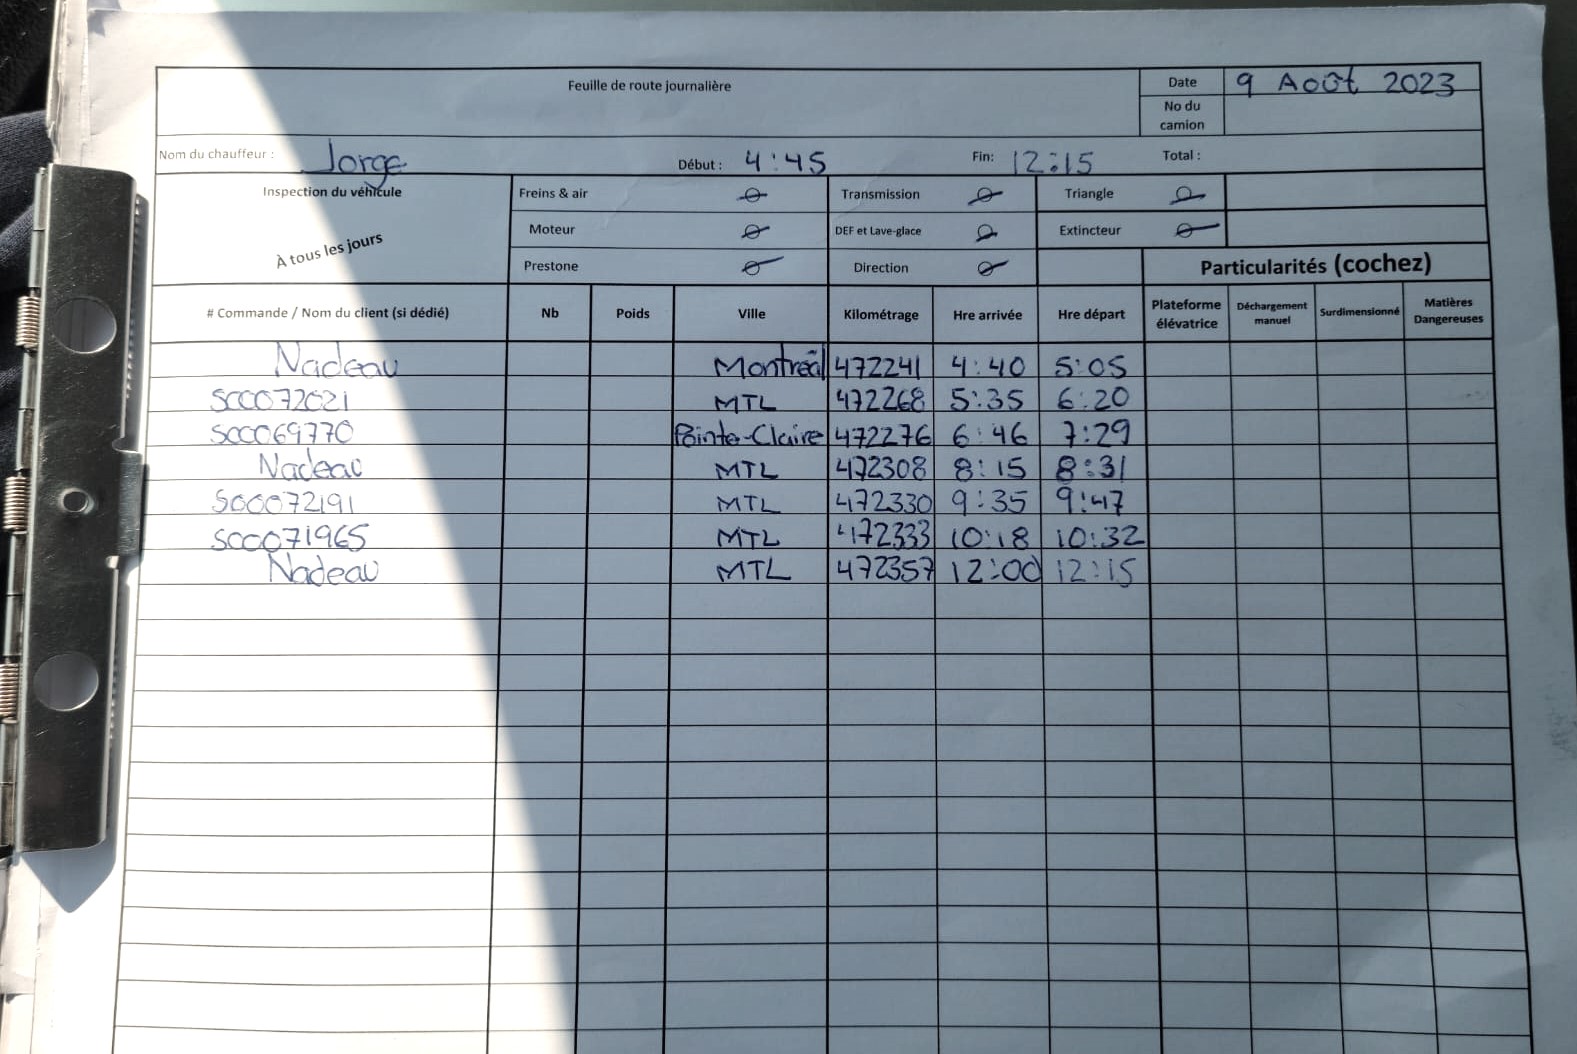 Feuille de route journalière
Date 9 Août 2023
No du camion
Nom du chauffeur : Jorge Début : 4:45 Fin: 12:15 Total :
Inspection du véhicule
À tous les jours
Freins & air Transmission Triangle
Moteur DEF et Lave-glace Extincteur
Prestone Direction Particularités (cochez)
# Commande / Nom du client (si dédié) Nb Poids Ville Kilométrage Hre arrivée Hre départ Plateforme élévatrice Déchargement manuel Surdimensionné Matières Dangereuses
Nadeau Montréal 472241 4:40 5:05
SCC072021 MTL 472268 5:35 6:20
SCC069770 Pointe-Claire 472276 6:46 7:29
Nadeau MTL 472308 8:15 8:31
SCC072191 MTL 472330 9:35 9:47
SCC071965 MTL 472333 10:18 10:32
Nadeau MTL 472357 12:00 12:15